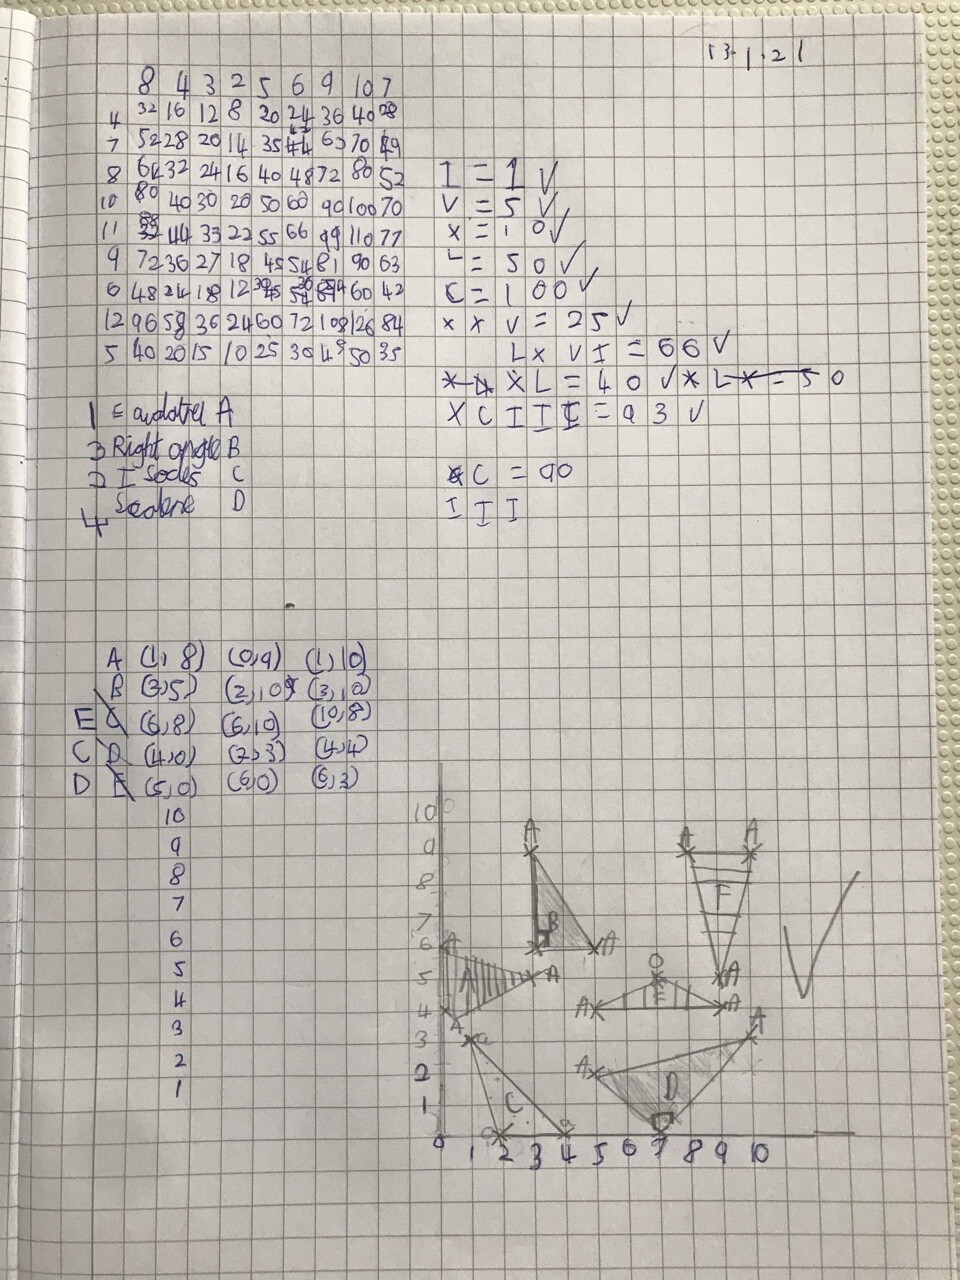 13.1.21
8 4 3 2 5 6 9 10 7
4 32 16 12 8 20 24 36 40 28
7 52 28 20 14 35 63 70 49
8 64 32 24 16 40 48 72 80 52
10 80 40 30 20 50 60 90 100 70
11 88 44 33 22 55 66 99 110 77
9 72 36 27 18 45 54 81 90 63
6 48 24 18 12 60 42
12 96 58 36 24 60 72 108 126 84
5 40 20 15 10 25 30 50 35
I = 1 ✓
V = 5 ✓
X = 10 ✓
L = 50 ✓
C = 100 ✓
X X V = 25 ✓
L X V I = 66 ✓
X L = 40 ✓ X L X = 50
X C I I I = 93 ✓
X C = 90
I I I
1 A
3 Right angle B
2 Isocles C
4 Scalene D
A (1, 8) (0,9) (1, 10)
B (3,5) (2,10) (3,10)
E C (6,8) (6,10) (10,8)
C D (4,0) (2,3) (4,4)
D E (5,0) (6,0) (6,3)
10
9
8
7
6
5
4
3
2
1
10
9 A A A
8 F
7 B
6 A A
5 A A O A
4 A A E A
3 a A
2 A D
1 C
0 1 2 3 4 5 6 7 8 9 10